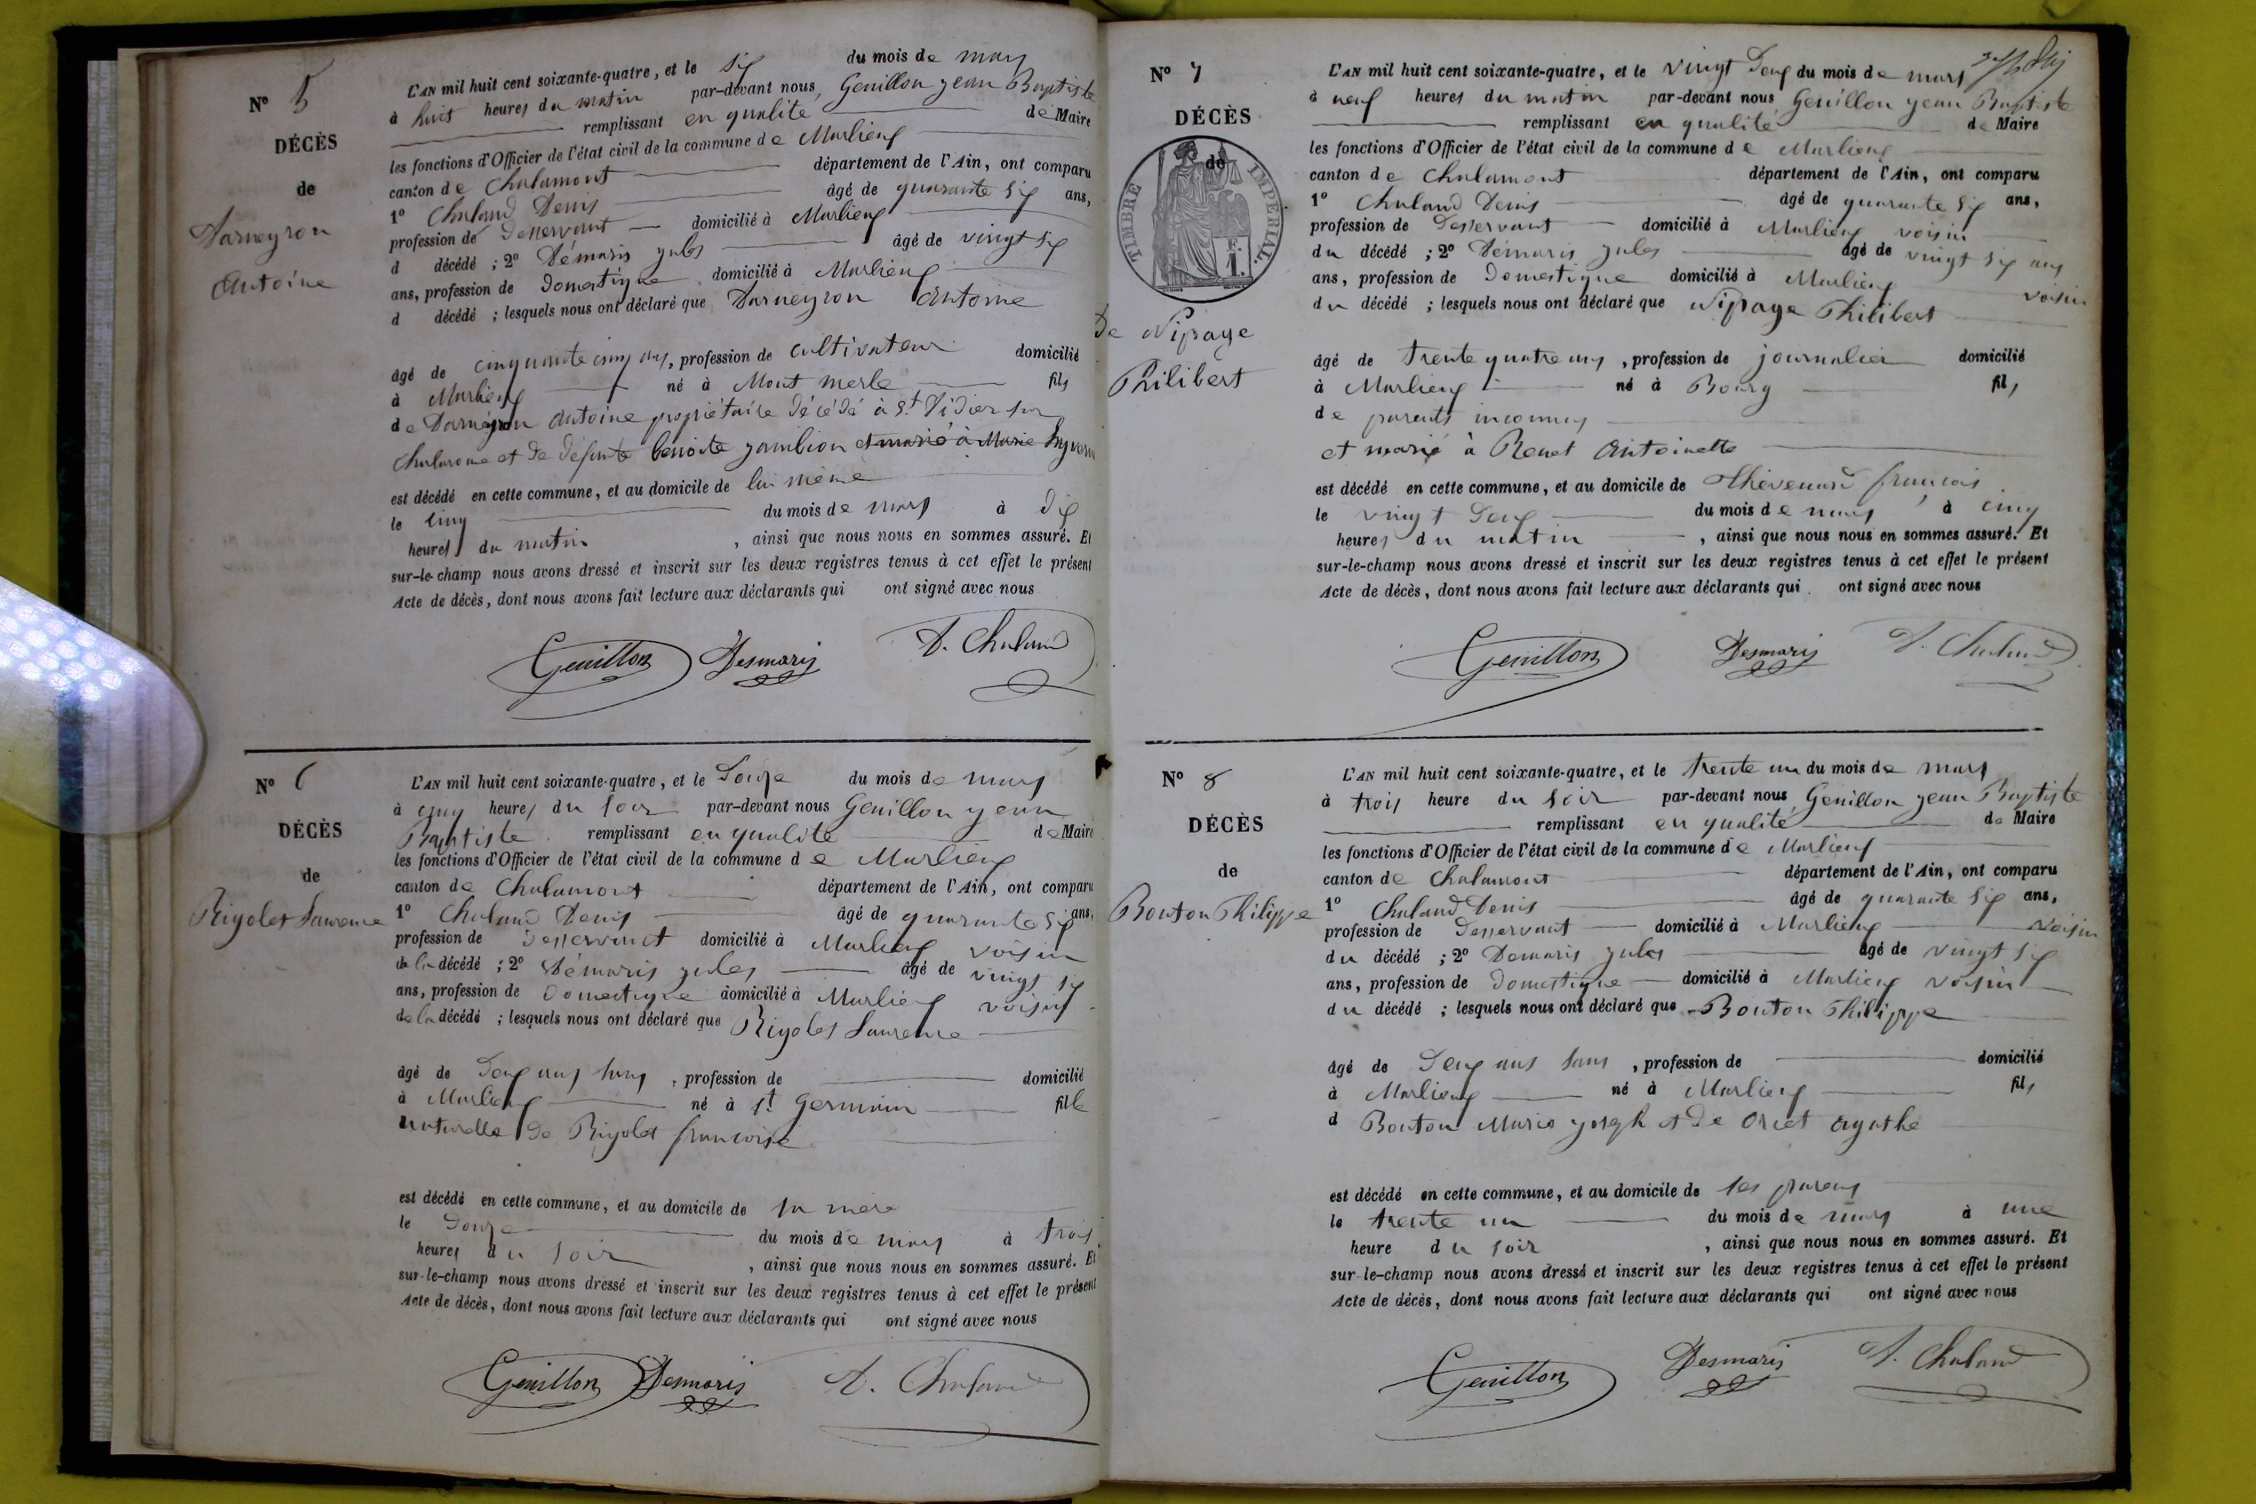 N° 5
DÉCÈS
de
Darneyron
Antoine
L'AN mil huit cent soixante-quatre, et le six du mois de mars
à huit heures du matin par-devant nous, Genillon jean Baptiste
remplissant en qualité de Maire
les fonctions d'Officier de l'état civil de la commune de Marlieux
canton de Chalamont département de l'Ain, ont comparu
1° Chaland Denis âgé de quarante six ans,
profession de desservant domicilié à Marlieux
d décédé ; 2° Démaris jules âgé de vingt six
ans, profession de domestique domicilié à Marlieux
d décédé ; lesquels nous ont déclaré que Darneyron Antoine
âgé de cinquante cinq ans, profession de cultivateur domicilié
à Marlieux né à Mont merle fils
de Darneyron Antoine propriétaire décédé à St Didier sur
Chalarone et de défunte benoite jambion et marié à Marie
est décédé en cette commune, et au domicile de lui même
le cinq du mois de mars à dix
heures du matin , ainsi que nous nous en sommes assuré. Et
sur-le-champ nous avons dressé et inscrit sur les deux registres tenus à cet effet le présent
Acte de décès, dont nous avons fait lecture aux déclarants qui ont signé avec nous
Genillon Desmaris D. Chaland
N° 6
DÉCÈS
de
Rigolet Laurence
L'AN mil huit cent soixante-quatre, et le douze du mois de mars
à cinq heures du soir par-devant nous Genillon jean
Baptiste remplissant en qualité de Maire
les fonctions d'Officier de l'état civil de la commune de Marlieux
canton de Chalamont département de l'Ain, ont comparu
1° Chaland Denis âgé de quarante six ans,
profession de desservant domicilié à Marlieux voisin
de la décédé ; 2° Démaris jules âgé de vingt six
ans, profession de domestique domicilié à Marlieux voisin
de la décédé ; lesquels nous ont déclaré que Rigolet Laurence
âgé de deux ans sans , profession de domicilié
à Marlieux né à St Germain fille
naturelle de Rigolet francoise
est décédé en cette commune, et au domicile de sa mere
le douze du mois de mars à trois
heures du soir , ainsi que nous nous en sommes assuré. Et
sur-le-champ nous avons dressé et inscrit sur les deux registres tenus à cet effet le présent
Acte de décès, dont nous avons fait lecture aux déclarants qui ont signé avec nous
Genillon Desmaris D. Chaland
N° 7
DÉCÈS
de
TIMBRE IMPÉRIAL.
1 F.
De Nipage
Philibert
L'AN mil huit cent soixante-quatre, et le vingt deux du mois de mars
à neuf heures du matin par-devant nous Genillon jean Baptiste
remplissant en qualité de Maire
les fonctions d'Officier de l'état civil de la commune de Marlieux
canton de Chalamont département de l'Ain, ont comparu
1° Chaland Denis âgé de quarante six ans,
profession de desservant domicilié à Marlieux voisin
du décédé ; 2° Démaris jules âgé de vingt six ans
ans, profession de domestique domicilié à Marlieux voisin
du décédé ; lesquels nous ont déclaré que Nipage Philibert
âgé de trente quatre ans , profession de journalier domicilié
à Marlieux né à Bourg fils
de parents inconnus
et marié à Renet Antoinette
est décédé en cette commune, et au domicile de Thévenard francois
le vingt deux du mois de mars à cinq
heures du matin , ainsi que nous nous en sommes assuré. Et
sur-le-champ nous avons dressé et inscrit sur les deux registres tenus à cet effet le présent
Acte de décès, dont nous avons fait lecture aux déclarants qui ont signé avec nous
Genillon Desmaris D. Chaland
N° 8
DÉCÈS
de
Bouton Philippe
L'AN mil huit cent soixante-quatre, et le trente un du mois de mars
à trois heure du soir par-devant nous Genillon jean Baptiste
remplissant en qualité de Maire
les fonctions d'Officier de l'état civil de la commune de Marlieux
canton de Chalamont département de l'Ain, ont comparu
1° Chaland Denis âgé de quarante six ans,
profession de desservant domicilié à Marlieux voisin
du décédé ; 2° Demaris jules âgé de vingt six
ans, profession de domestique domicilié à Marlieux voisin
du décédé ; lesquels nous ont déclaré que Bouton Philippe
âgé de deux ans sans , profession de domicilié
à Marlieux né à Marlieux fils
d Bouton Marie joseph et de Oriet Agathe
est décédé en cette commune, et au domicile de ses parens
le trente un du mois de mars à une
heure du soir , ainsi que nous nous en sommes assuré. Et
sur-le-champ nous avons dressé et inscrit sur les deux registres tenus à cet effet le présent
Acte de décès, dont nous avons fait lecture aux déclarants qui ont signé avec nous
Genillon Desmaris D. Chaland